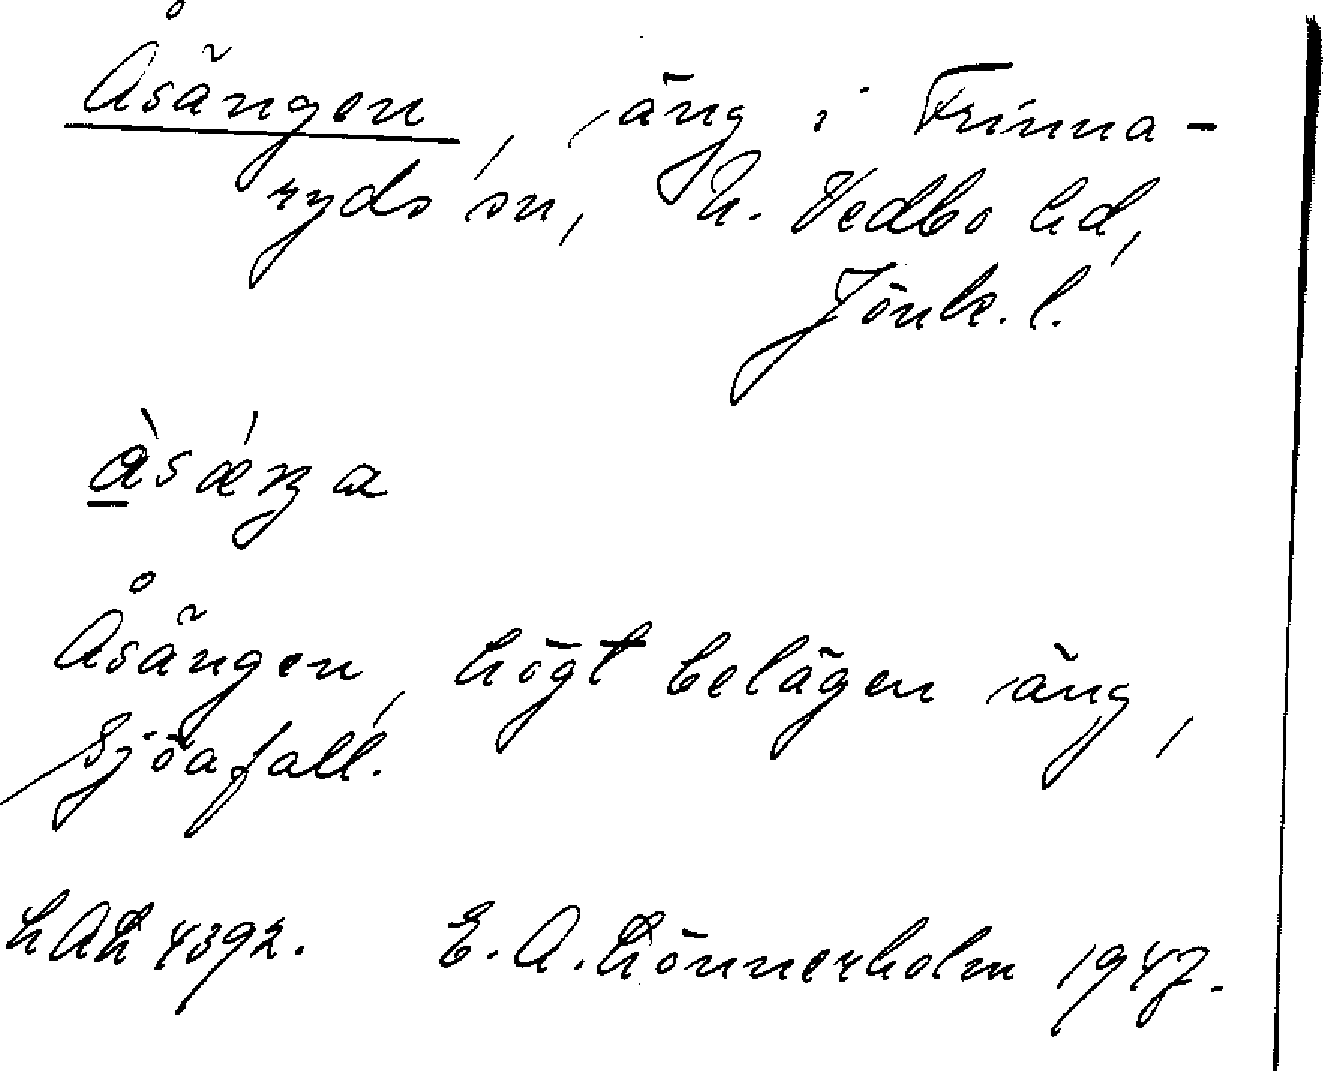 Åsängen, äng i Frinna-
ryds sn, N. Vedbo hd,
Jönk. l.
å̀sǽŋa
Åsängen, högt belägen äng,
Sjöafall.
LAL 4392. E. A. Lönnerholm 1947.